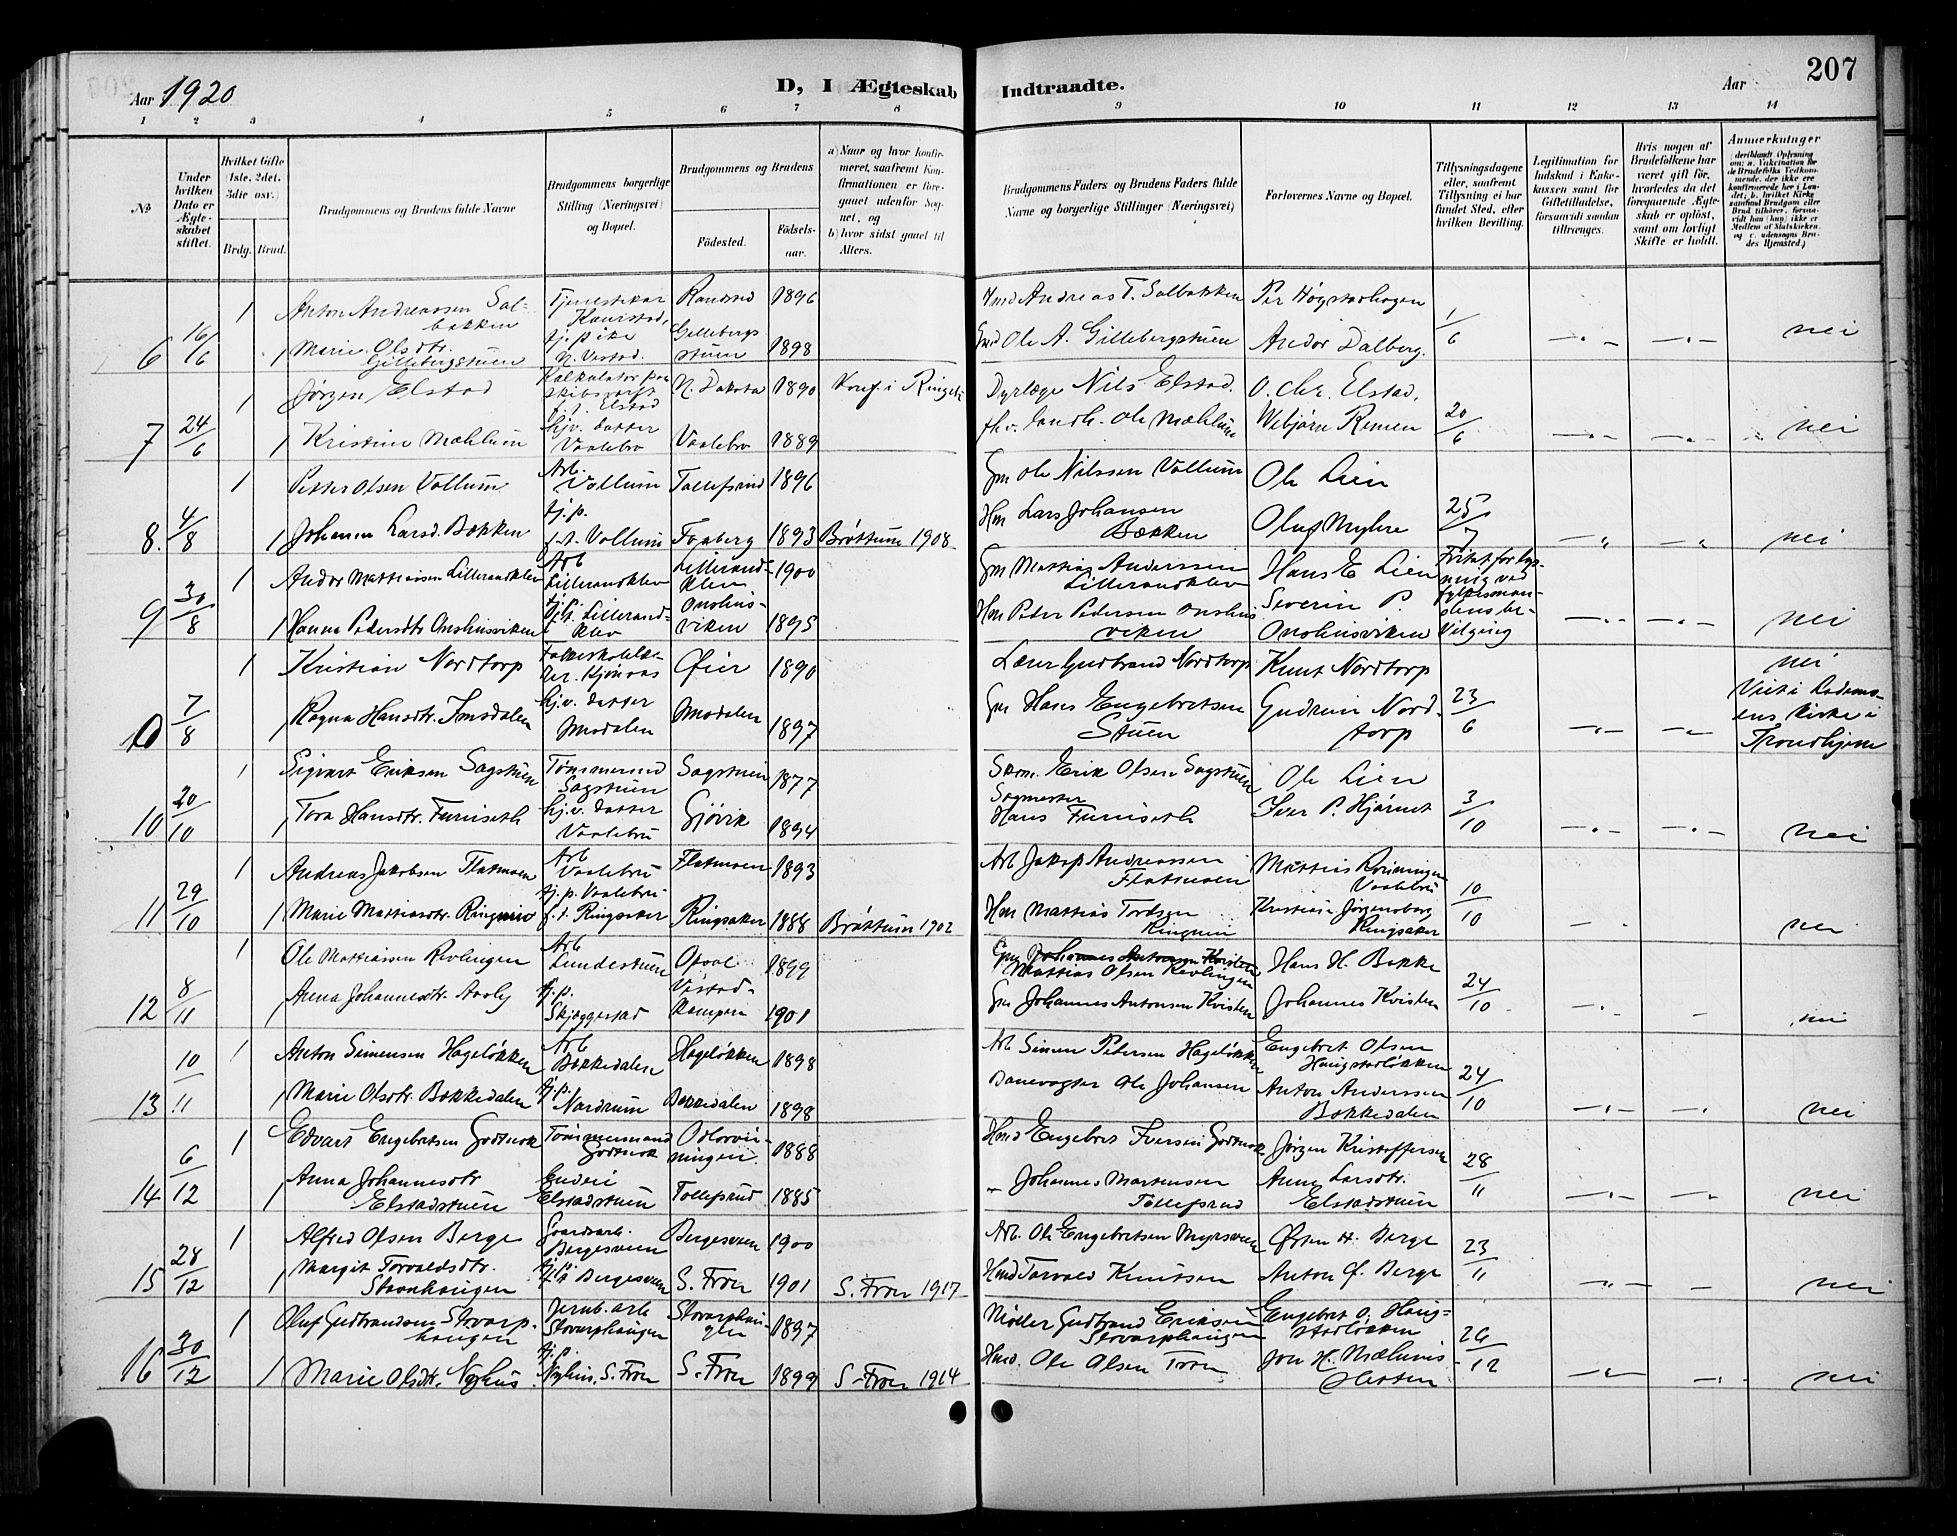 207
Aar 1920
D, I Ægteskab Indtraadte.
Aar
1 2 3 4 5 6 7 8 9 10 11 12 13 14
No
Under hvilken Dato er Ægteskabet stiftet.
Hvilket Gifte (1ste, 2det, 3die osv.)
Brdg. Brud.
Brudgommens og Brudens fulde Navne
Brudgommens borgerlige Stilling (Næringsvei) og Bopæl.
Brudgommens og Brudens
Födested.
Födselsaar.
a) Naar og hvor konfirmeret, saafremt Konfirmationen er foregaaet udenfor Sognet, og b) hvor sidst gaaet til Alters.
Brudgommens Faders og Brudens Faders fulde Navne og borgerlige Stillinger (Næringsvei)
Forlovernes Navne og Bopæl.
Tillysningsdagene eller, saafremt Tillysning ei har fundet Sted, efter hvilken Bevilling.
Legitimation for Indskud i Enkekassen samt for Giftetilladelse, forsaavidt saadan tiltrænges.
Hvis nogen af Brudefolkene har været gift för, hvorledes da det foregaaende Ægteskab er oplöst, samt om lovligt Skifte er holdt.
Anmerkninger
6 16/6 1 Anton Andreassen Salbakken Tjenestekar Ramstad 1896 Andreas T. Salbakken Per Høgstadhagen 1/6 nei
1 Marie Olsdtr. Gillebergstuen tj. pike N. Vestad. Gillebergstuen 1898 Ole A. Gillebergstuen Andor Dalberg.
7 24/6 1 Jørgen Elstad N. Dakota 1890 Konf. i Dyrlæge Nils Elstad. O. Chr. Elstad. 20/6 nei
1 Kristine Mæhlum hjv. datter Vaalebro Vaalebro 1889 Ole Mæhlum Vebjørn Remen
8. 4/8 1 Petter Olsen Vollum Arb. Vollum Tollefsrud 1896 Gm Ole Nilssen Vollum Ole Lien 25/7 nei
1 Johanne Larsd. Bækken tj. p. f. t. Vollum Faaberg 1893 Brøttum 1908 Hm Lars Johansen Bækken Oluf Myhre
9 30/8 1 Andor Mattiassen Lillerandklev Arb Lillerandklev Lillerandklev 1900 Gm Mattias Anderssen Lillerandklev Hans E Lien
1 Hanna Pedersdtr Onshusviken Lillerandklev Onshusviken 1895 Hm Peder Pedersen Onshusviken Severin P. Onshusviken nei
10 7/8 1 Kristian Nordtorp Øier 1890 Lærer Gudbrand Nordtorp Knut Nordtorp 23/6 nei
1 Ragna Hansdtr. Imsdalen hj.v. datter Imsdalen 1897 Gm Hans Engebretsen Stuen Gudrun Nordtorp Viet i kirke i Trondhjem
10 20/10 1 Sigvart Eriksen Sagstuen Tømmermand Sagstuen Sagstuen 1877 Erik Olsen Sagstuen Ole Lien 3/10 nei
1 Tora Hansdtr. Furuseth hj.v. datter Vaalebru Gjøvik 1894 Sagmester Hans Furuseth Iver P. Hjørnet
11 29/10 1 Andreas Jakobsen Flatmoen Arb Vaalebru Flatmoen 1893 Arb Jakop Andreassen Flatmoen Mattias Vaalebru 10/10 nei
1 Marie Mattiasdtr. tj. p. Vaalebru f. t. Ringsaker Ringsaker 1888 Brøttum 1902 Hm Mattias Tordsen Kristian Jørgensberg Ringsaker
12 8/11 1 Ole Mattiassen Revlingen Arb Lundestuen Opsal 1899 Gm Johannes Antonsen Kvisten Mattias Olsen Revlingen Hans H. Bakke 24/10 nei
1 Anna Johannesdtr. Aasly tj. p. Skjæggestad Vestadkampen 1901 Gm Johannes Antonsen Kvisten Johannes Kvisten
13 10/11 1 Anton Simensen Hageløkken Arb Bækkedalen Hageløkken 1898 Arb Simen Pedersen Hageløkken Engebret Olsen Haugstadløkken 24/10 nei
1 Marie Olsdtr. Bækkedalen tj.p. Nordrum Bækkedalen 1898 Banevogter Ole Johansen Anton Anderssen Bækkedalen
14 6/12 1 Edvart Engebretsen Godtnok Tømmermand Godtnok 1888 Hmd Engebret Iversen Godtnok Jørgen Kristoffersen 28/11 nei
1 Anna Johannesdtr Elstadstuen Elstadstuen Tollefsrud 1885 Johannes Martensen Tollefsrud Anne Larsdtr. Elstadstuen
15 28/12 1 Alfred Olsen Berge Gaardsarb. Bergesveen Bergesveen 1900 Arb. Ole Engebretsen Myrsveen Østen H. Berge 23/11 nei
1 Margit Torvaldsdtr. Stavnhaugen Bergesveen S. Fron 1901 S. Fron 1917 Hmd Torvald Knutsen Anton G. Berge
16 30/12 1 Oluf Gudbrandsen Stovarphaugen Jernb. arb Stovarphaugen Stovarphaugen 1897 Møller Gudbrand Eriksen Stovarphaugen Engebret O. Haugstadløkken 26/12 nei
1 Marie Olsdtr. Nyhus tj.p. Nyhus, S. Fron S. Fron 1899 S. Fron 1914 Hmd. Ole Olsen Jon H. Mælums